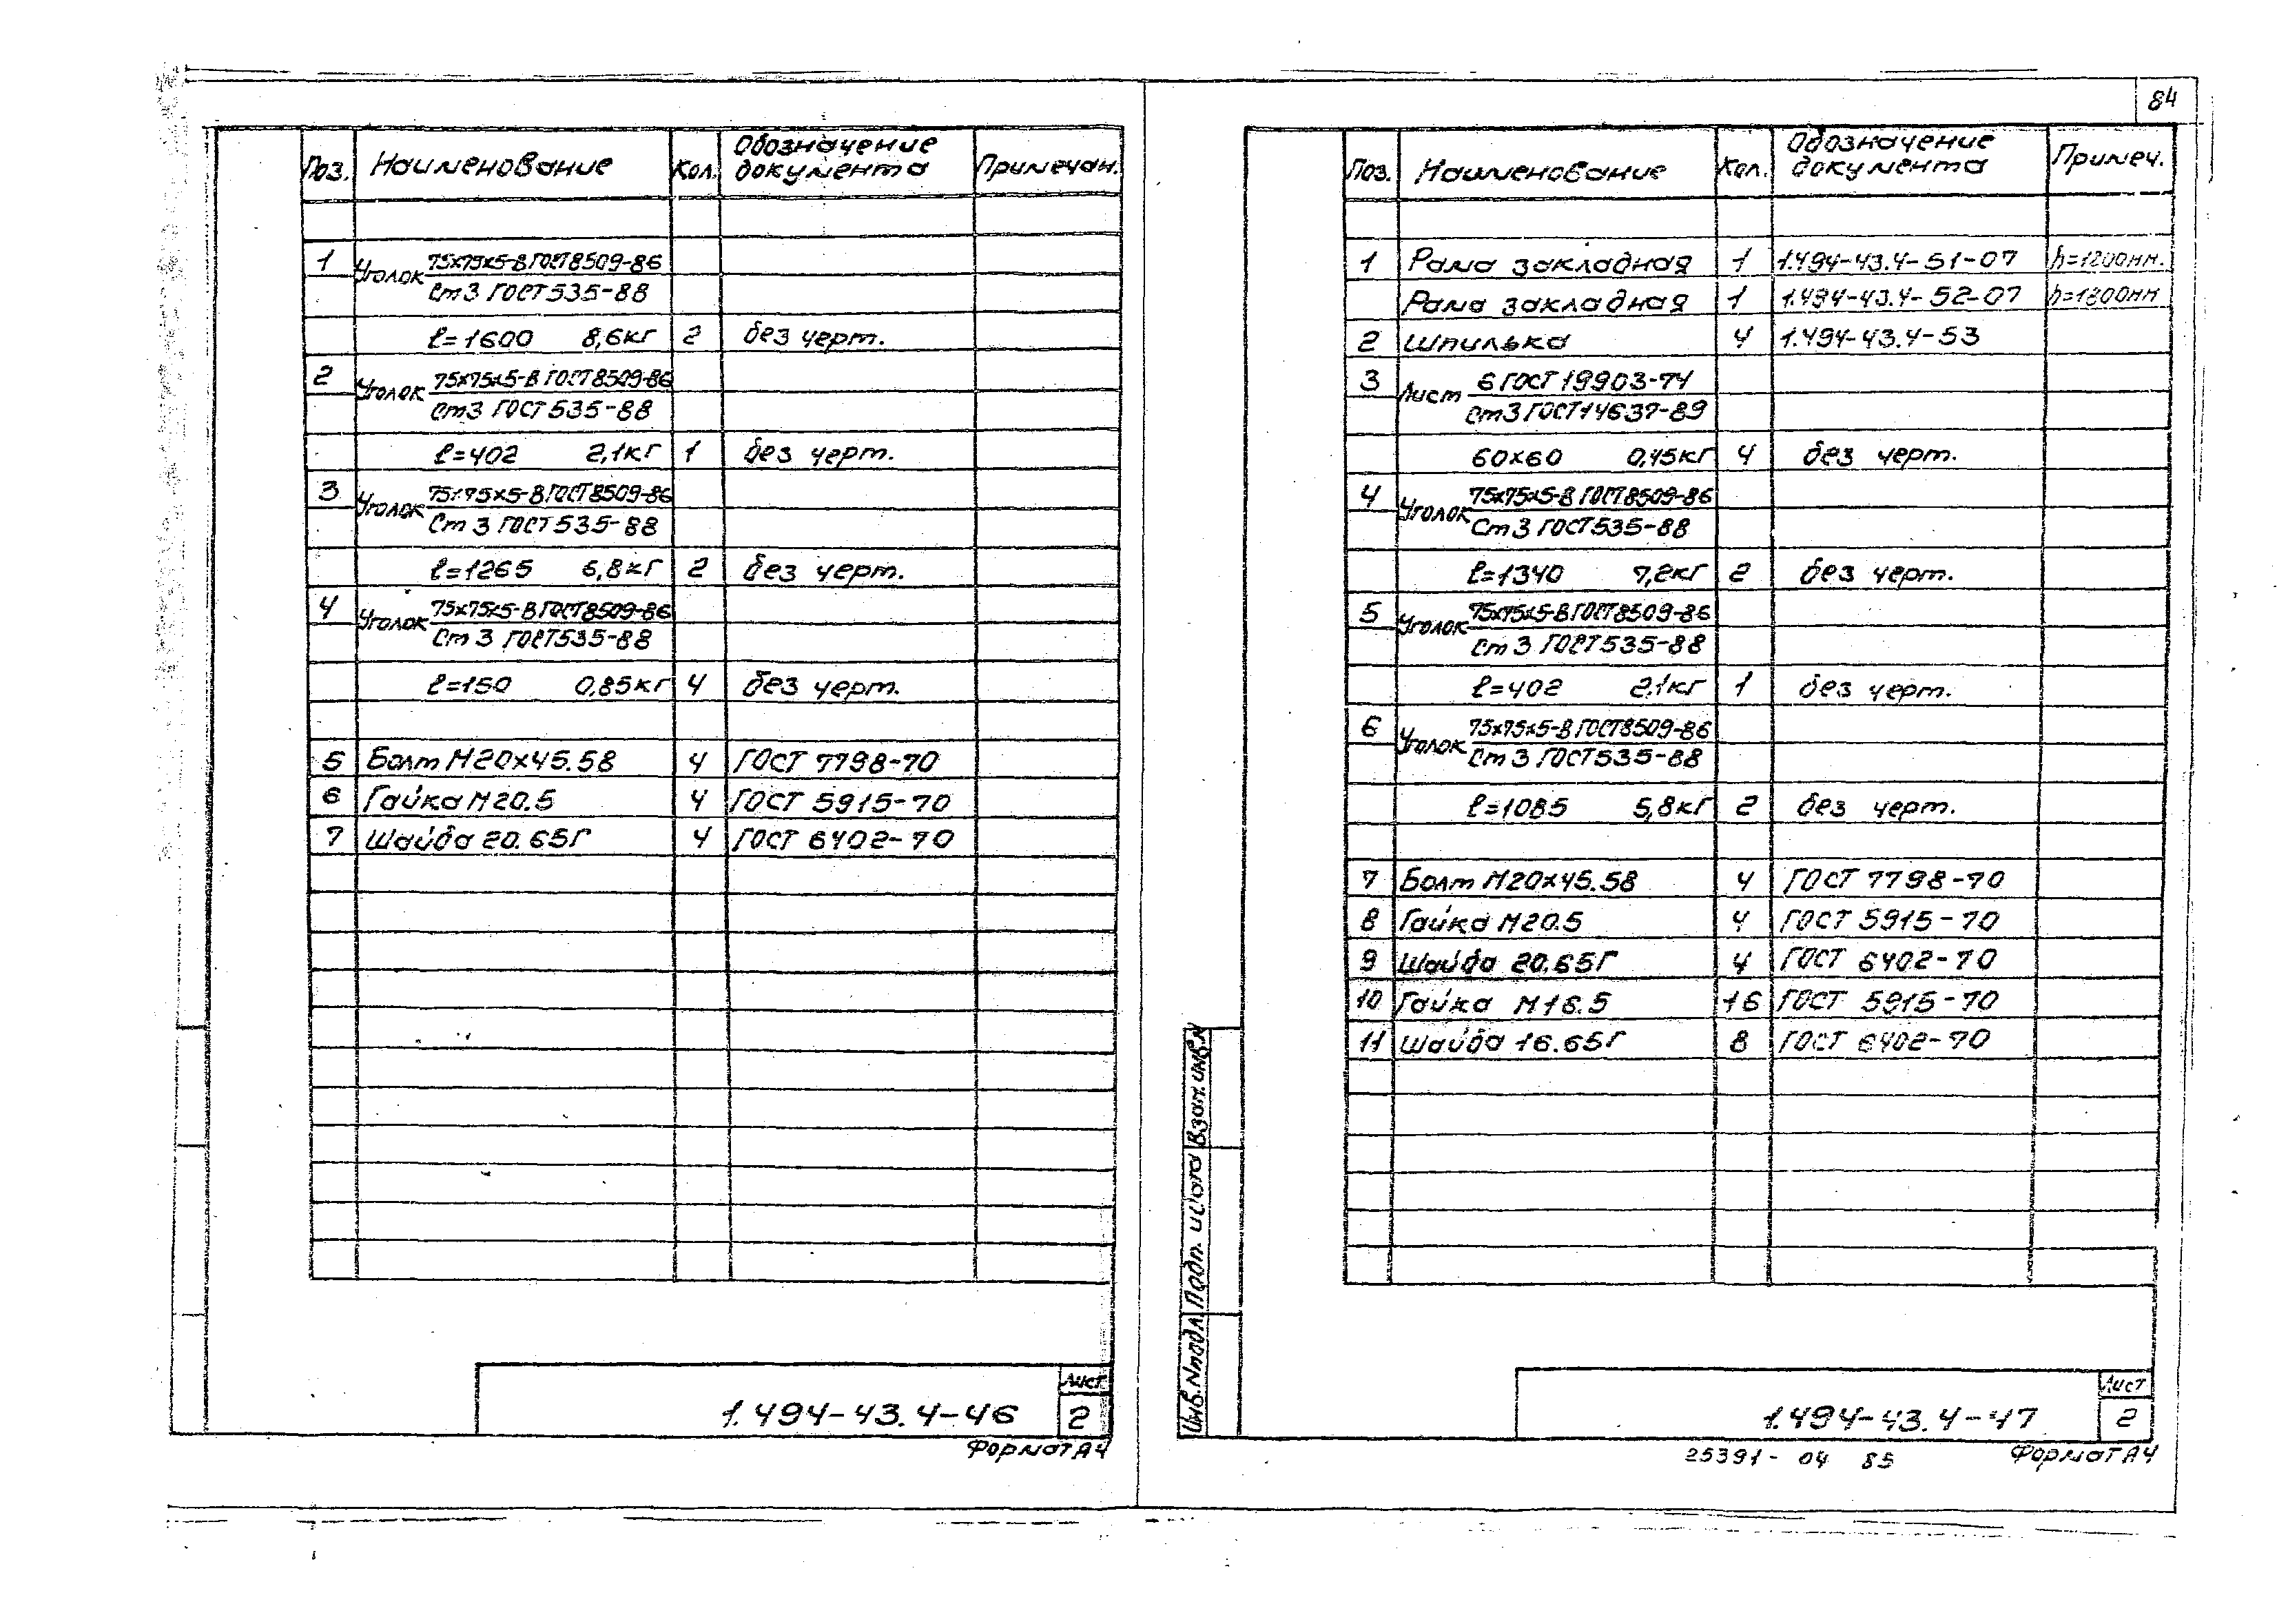 84
Поз. Наименование Кол. Обозначение документа Примечан.
1 Уголок 75х75х5-В ГОСТ 8509-86
Ст3 ГОСТ 535-88
ℓ=1600 8,6кг 2 без черт.
2 Уголок 75х75х5-В ГОСТ 8509-86
Ст3 ГОСТ 535-88
ℓ=402 2,1кг 1 без черт.
3 Уголок 75х75х5-В ГОСТ 8509-86
Ст 3 ГОСТ 535-88
ℓ=1265 6,8кг 2 без черт.
4 Уголок 75х75х5-В ГОСТ 8509-86
Ст 3 ГОСТ 535-88
ℓ=150 0,85кг 4 без черт.
5 Болт М20х45.58 4 ГОСТ 7798-70
6 Гайка М20.5 4 ГОСТ 5915-70
7 Шайба 20.65Г 4 ГОСТ 6402-70
1.494-43.4-46
Лист
2
Формат А4
Поз. Наименование Кол. Обозначение документа Примеч.
1 Рама закладная 1 1.494-43.4-51-07 h=1200мм.
Рама закладная 1 1.494-43.4-52-07 h=1800мм
2 Шпилька 4 1.494-43.4-53
3 Лист 6 ГОСТ 19903-74
Ст3 ГОСТ 14637-89
60х60 0,45кг 4 без черт.
4 Уголок 75х75х5-В ГОСТ 8509-86
Ст3 ГОСТ 535-88
ℓ=1340 7,2кг 2 без черт.
5 Уголок 75х75х5-В ГОСТ 8509-86
Ст 3 ГОСТ 535-88
ℓ=402 2,1кг 1 без черт.
6 Уголок 75х75х5-В ГОСТ 8509-86
Ст 3 ГОСТ 535-88
ℓ=1085 5,8кг 2 без черт.
7 Болт М20х45.58 4 ГОСТ 7798-70
8 Гайка М20.5 4 ГОСТ 5915-70
9 Шайба 20.65Г 4 ГОСТ 6402-70
10 Гайка М16.5 16 ГОСТ 5915-70
11 Шайба 16.65Г 8 ГОСТ 6402-70
Инв.Nподл Подп. и дата Взам.инв.N
1.494-43.4-47
Лист
2
25391-04 85 Формат А4